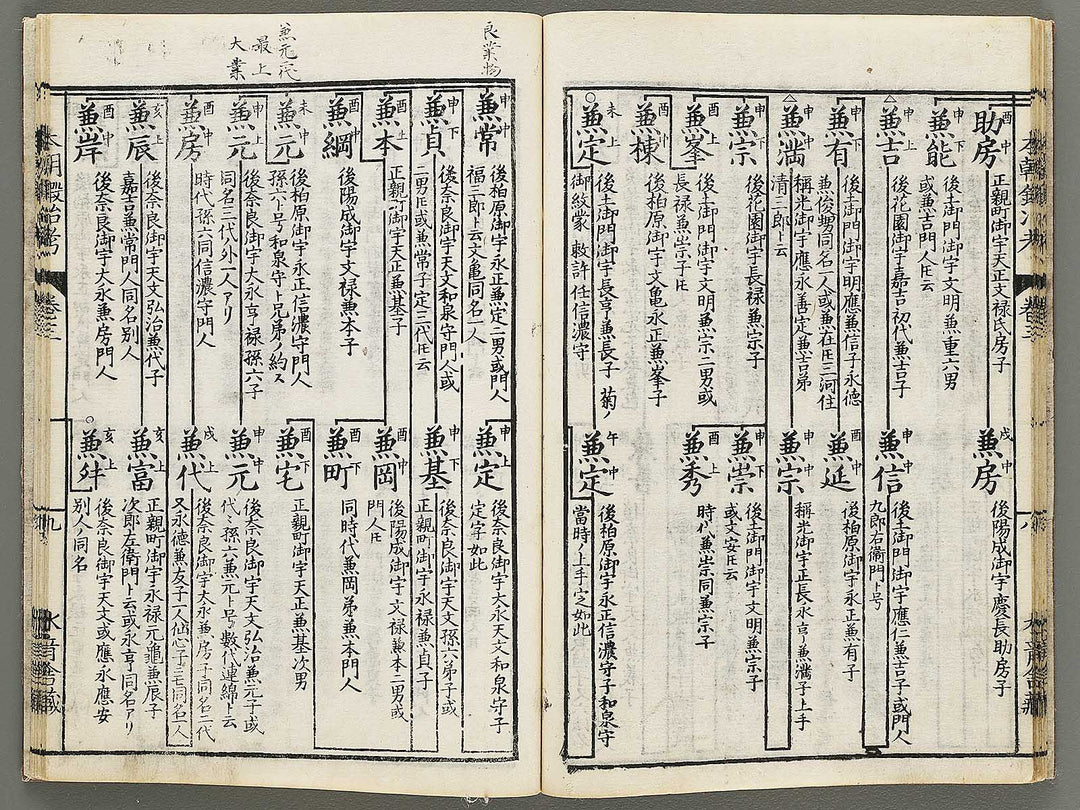 助房 酉 中
正親町御宇天正文禄氏房子
兼能 申 下
後土御門御宇文明兼重六男
或兼吉門人𪜈云
△
兼吉 申 上
後花園御宇嘉吉初代兼吉子
兼有 申 下
後土御門御宇明應兼信子永德
兼俊甥同名一人或兼在𪜈三河住
△
兼満 申 中
稱光御宇應永善定兼吉弟
清三郎ト云
兼宗 申 下
後花園御宇長禄兼宗子
兼峯 酉 上
後土御門御宇文明兼宗二男或
長禄兼宗子𪜈
兼棟 酉 中
後柏原御宇文亀永正兼峯子
○
兼定 未 上
後土御門御宇長亨兼長子 菊ノ
御紋蒙 敕許任信濃守
兼房 戌 中
後陽成御宇慶長助房子
兼信 申 中
後土御門御宇應仁兼吉子或門人
九郎右衛門ト号
兼延 酉 中
後柏原御宇永正兼有子
兼宗 申 中
稱光御宇正長永亨兼満子上手
兼崇 申 下
後土御門御宇文明兼宗子
或文安𪜈云
兼秀 酉 上
時代兼崇同兼宗子
兼定 午 中
後柏原御宇永正信濃守子和泉守
當時ノ上手定如此
卷三
八
良業物
兼元二代
最上
大業
兼常 申 中
後柏原御宇永正兼定二男或門人
福三郎ト云文亀同名一人
兼貞 申 下
後奈良御宇天文和泉守門人或
二男𪜈或兼常子定三代𪜈云
兼本 酉 上
正親町御宇天正兼基子
兼綱 酉 中
後陽成御宇文禄兼本子
兼元 未 中
後柏原御宇永正信濃守門人
孫六ト号和泉守ト兄弟ノ約ス
兼元 申 上
後奈良御宇大永亨禄孫六子
同名三代外一人アリ
兼房 酉 中
時代孫六同信濃守門人
兼辰 亥 上
後奈良御宇天文弘治兼代子
嘉吉兼常門人同名別人
兼岸 酉 中
後奈良御宇大永兼房門人
兼定 申 上
後奈良御宇大永天文和泉守子
定字如此
兼基 申 下
後奈良御宇天文孫六弟子或
正親町御宇永禄兼貞子
兼岡 酉 中
後陽成御宇文禄兼本二男或
門人𪜈
兼町 酉 下
同時代兼岡弟兼本門人
兼宅 酉 下
正親町御宇天正兼基次男
兼元 申 中
後奈良御宇天文弘治兼元子或
代々孫六兼元ト号數代連綿ト云
兼代 戌 上
後奈良御宇大永兼房子同名二代
兼富 亥 上
正親町御宇永禄元龜兼辰子
次郎左衛門ト云或永亨同名アリ
○
亥 上
後奈良御宇天文或應永應安
別人ノ同名
本朝鍛冶考
卷三
九